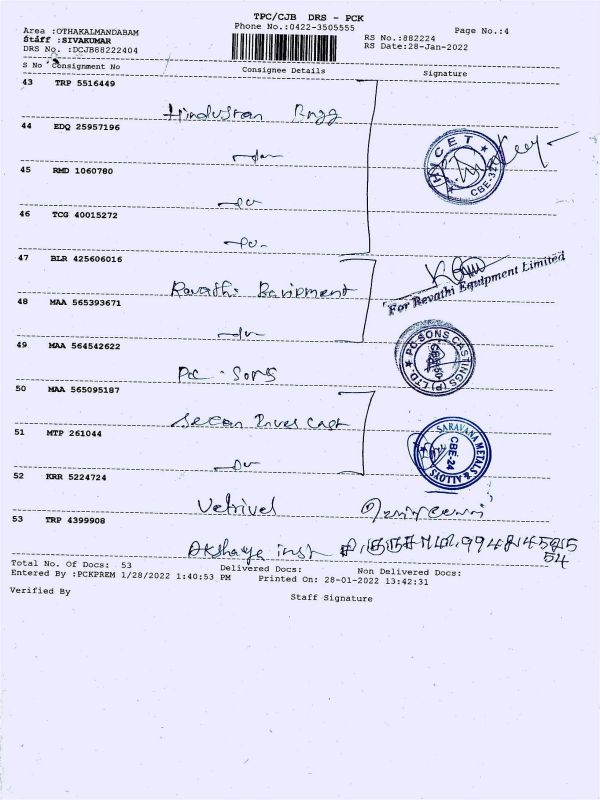 TPC/CJB DRS - PCK
Phone No.:0422-3505555
Page No.:4
Area :OTHAKALMANDABAM
Staff :SIVAKUMAR
DRS No. :DCJB88222404
RS No.:882224
RS Date:28-Jan-2022
S No Consignment No Consignee Details Signature
43 TRP 5516449
Hindustan Engg
44 EDQ 25957196
HNCET
45 RMD 1060780
46 TCG 40015272
47 BLR 425606016
For Revathi Equipment Limited
48 MAA 565393671
49 MAA 564542622
PC SONS CASTINGS (P) LTD
Pc. Sons
50 MAA 565095187
51 MTP 261044
SARAVANA METALS & ALLOYS
CBE-24
52 KRR 5224724
Vetrivel
53 TRP 4399908
Akshaya inst
Total No. Of Docs: 53 Delivered Docs: Non Delivered Docs:
Entered By :PCKPREM 1/28/2022 1:40:53 PM Printed On: 28-01-2022 13:42:31
Verified By Staff Signature